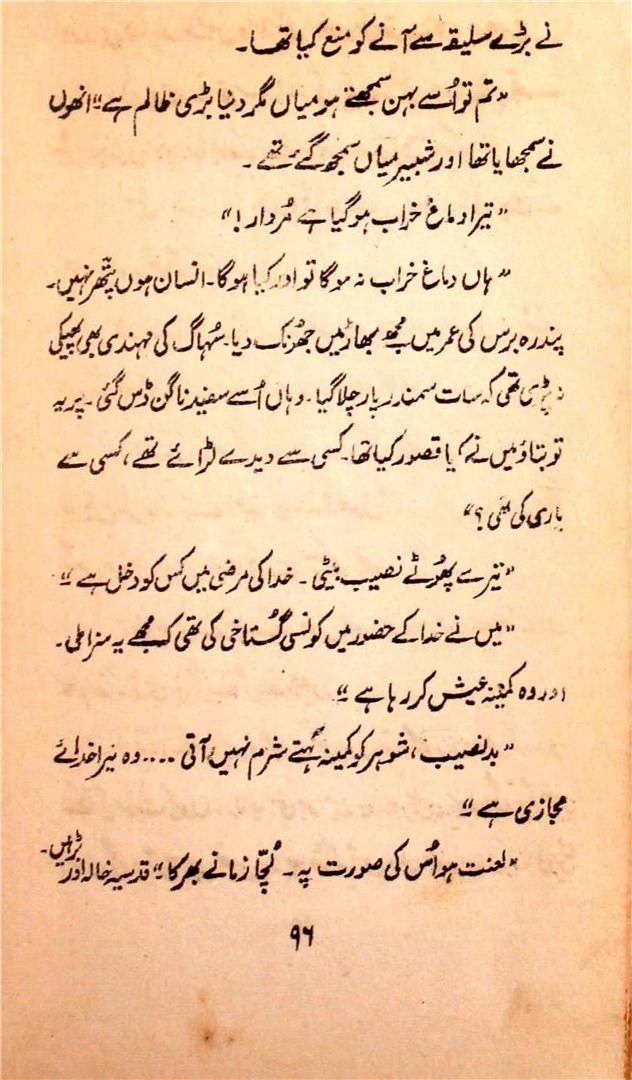 نے بڑے سلیقہ سے آنے کو منع کیا تھا۔
"تم تو اُسے بہن سمجھتے ہو میاں مگر دنیا بڑی ظالم ہے" انھوں
نے سمجھایا تھا اور شبیر میاں سمجھ گئے تھے۔
"تیرا دماغ خراب ہو گیا ہے مُردار!"
"ہاں دماغ خراب نہ ہوگا تو اور کیا ہوگا۔ انسان ہوں پتّھر نہیں۔
پندرہ برس کی عمر میں مجھے بھاڑ میں جھونک دیا۔ سُہاگ کی مہندی بھی پھیکی
نہ پڑی تھی کہ سات سمندر پار چلا گیا۔ وہاں اُسے سفید ناگن ڈس گئی۔ پر یہ
تو بتاؤ میں نے کیا قصور کیا تھا۔ کسی سے دیدے لڑائے تھے، کسی سے
یاری کی تھی؟"
"تیرے پھوُٹے نصیب بیٹی۔ خدا کی مرضی میں کس کو دخل ہے"
"میں نے خدا کے حضور میں کونسی گُستاخی کی تھی کہ مجھے یہ سزا ملی۔
اور وہ کمینہ عیش کر رہا ہے"
"بدنصیب، شوہر کو کمینہ کہتے شرم نہیں آتی .... وہ تیرا خدائے
مجازی ہے"
"لعنت ہو اُس کی صورت پہ۔ لُچّا زمانے بھر کا" قدسیہ خالہ اور بڑھیں۔
۹۶